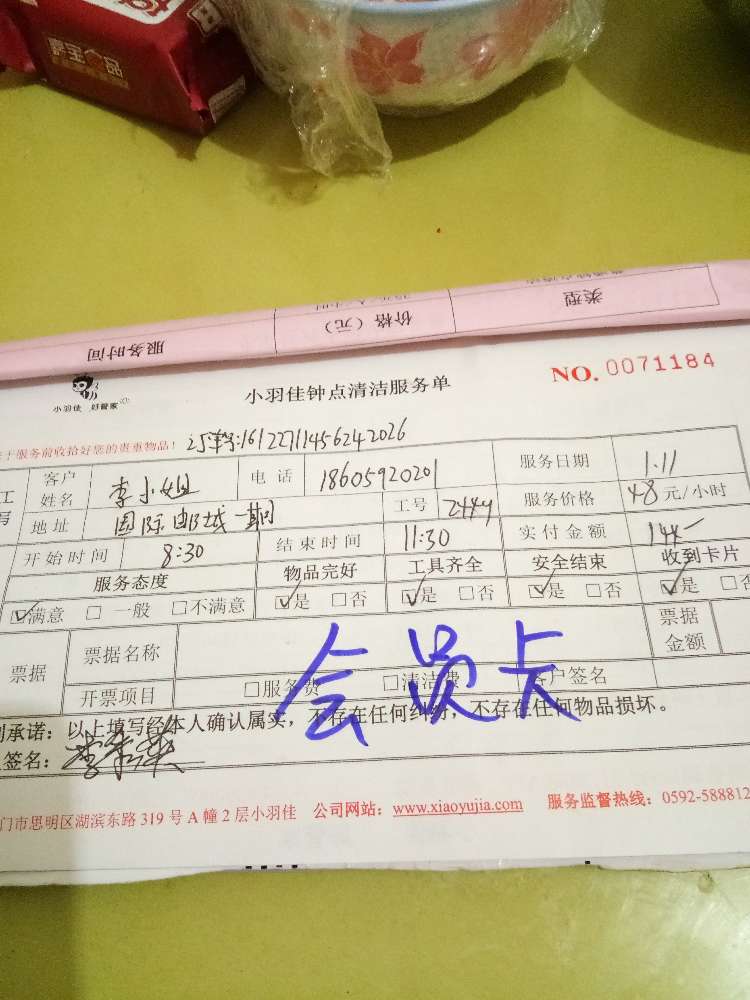 嘉宝食品
类型
价格（元）
服务时间
小羽佳 好管家
小羽佳钟点清洁服务单
NO. 0071184
于服务前收拾好您的贵重物品！
订单号:16122711456242026
客户姓名 李小姐 电话 18605920201 服务日期 1.11
地址 国际邮城一期 工号 服务价格 48元/小时
开始时间 8:30 结束时间 11:30 实付金额 144-
服务态度 物品完好 工具齐全 安全结束 收到卡片
☑满意 □一般 □不满意 ☑是 □否 ☑是 □否 ☑是 □否 ☑是 □否
票据 票据名称 票据金额
开票项目 □服务费 □清洁费 客户签名
会员卡
承诺：以上填写经本人确认属实，不存在任何纠纷，不存在任何物品损坏。
签名：
门市思明区湖滨东路319号A幢2层小羽佳 公司网站：www.xiaoyujia.com 服务监督热线：0592-588812